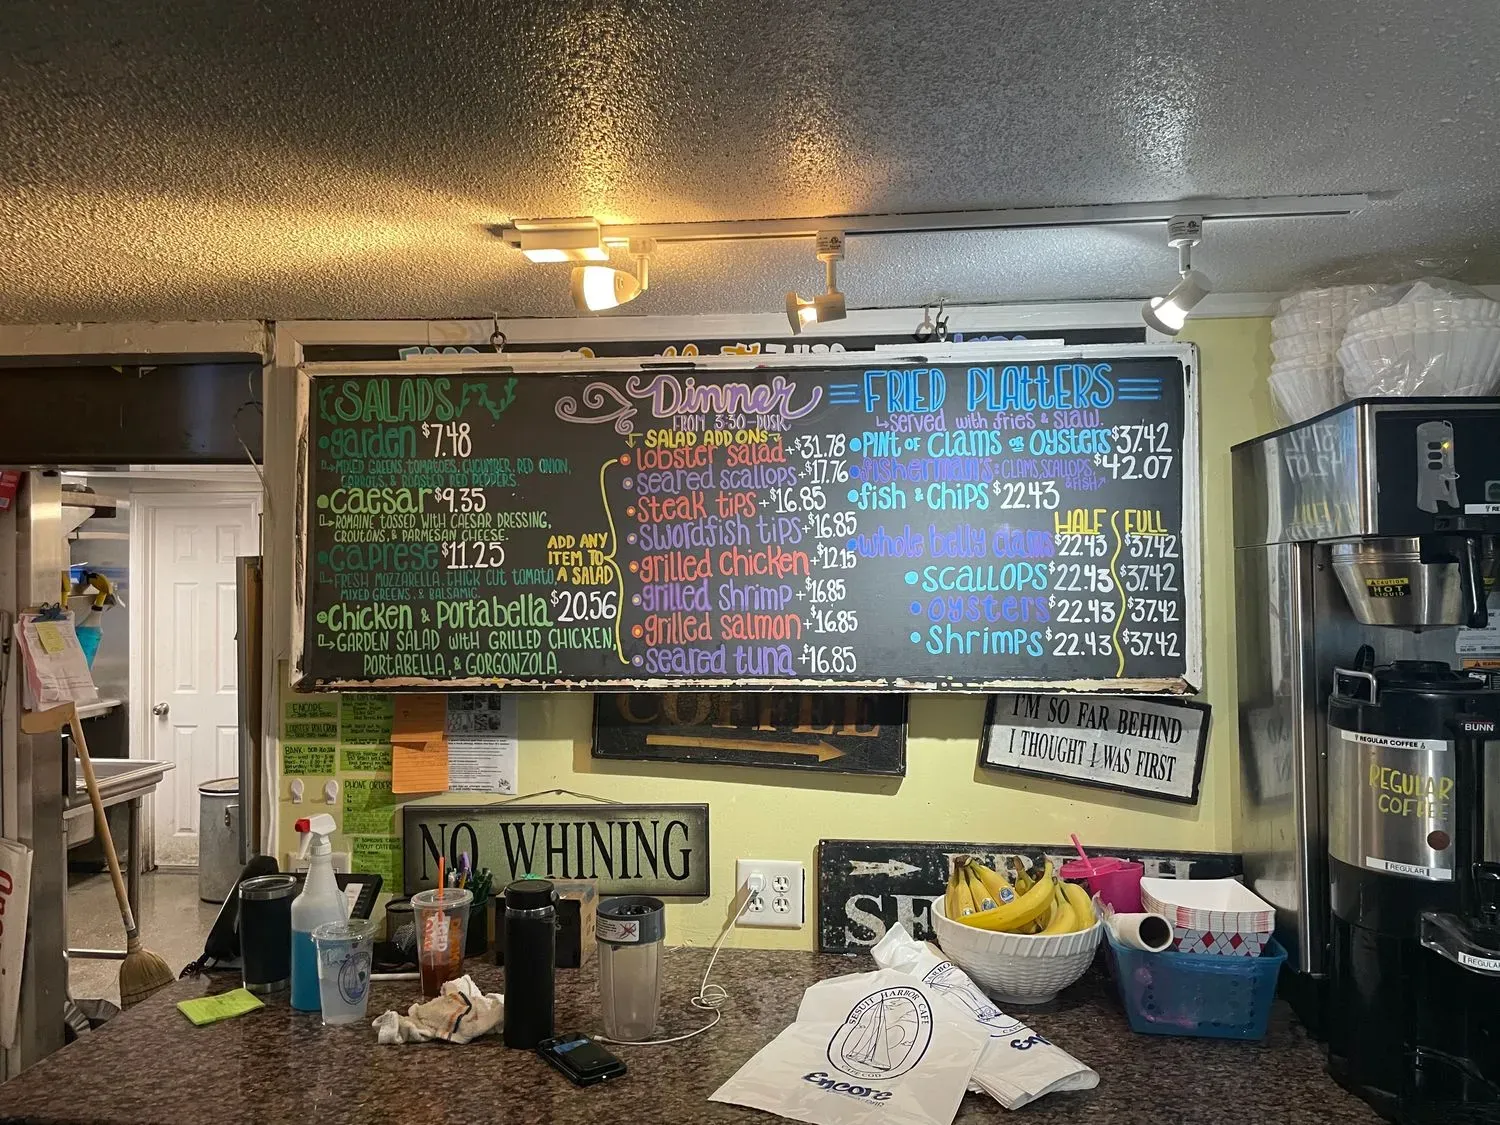 SALADS
garden $7.48
MIXED GREENS, TOMATOES, CUCUMBER, RED ONION,
CARROTS, & ROASTED RED PEPPERS.
caesar $9.35
ROMAINE TOSSED WITH CAESAR DRESSING,
CROUTONS, & PARMESAN CHEESE.
caprese $11.25
FRESH MOZZARELLA, THICK CUT TOMATO,
MIXED GREENS, & BALSAMIC.
Chicken & Portabella $20.56
GARDEN SALAD WITH GRILLED CHICKEN,
PORTABELLA, & GORGONZOLA.
ADD ANY
ITEM TO
A SALAD
Dinner
FROM 3:30-DUSK
SALAD ADD ONS
lobster salad +$31.78
seared scallops +$17.76
steak tips +$16.85
swordfish tips +$16.85
grilled chicken +$12.15
grilled shrimp +$16.85
grilled salmon +$16.85
seared tuna +$16.85
FRIED PLATTERS
served with fries & slaw.
PINT OF CLAMS OR OYSTERS $37.42
fisherman's: CLAMS, SCALLOPS, $42.07
& FISH
fish & chips $22.43
HALF FULL
whole belly clams $22.43 $37.42
SCALLOPS $22.43 $37.42
oysters $22.43 $37.42
Shrimps $22.43 $37.42
COFFEE
I'M SO FAR BEHIND
I THOUGHT I WAS FIRST
NO WHINING
SE
ENCORE
PHONE ORDERS
SESUIT HARBOR CAFE
CAPE COD
Encore
CAUTION
HOT
LIQUID
BUNN
REGULAR COFFEE
REGULAR
COFFEE
REGULAR